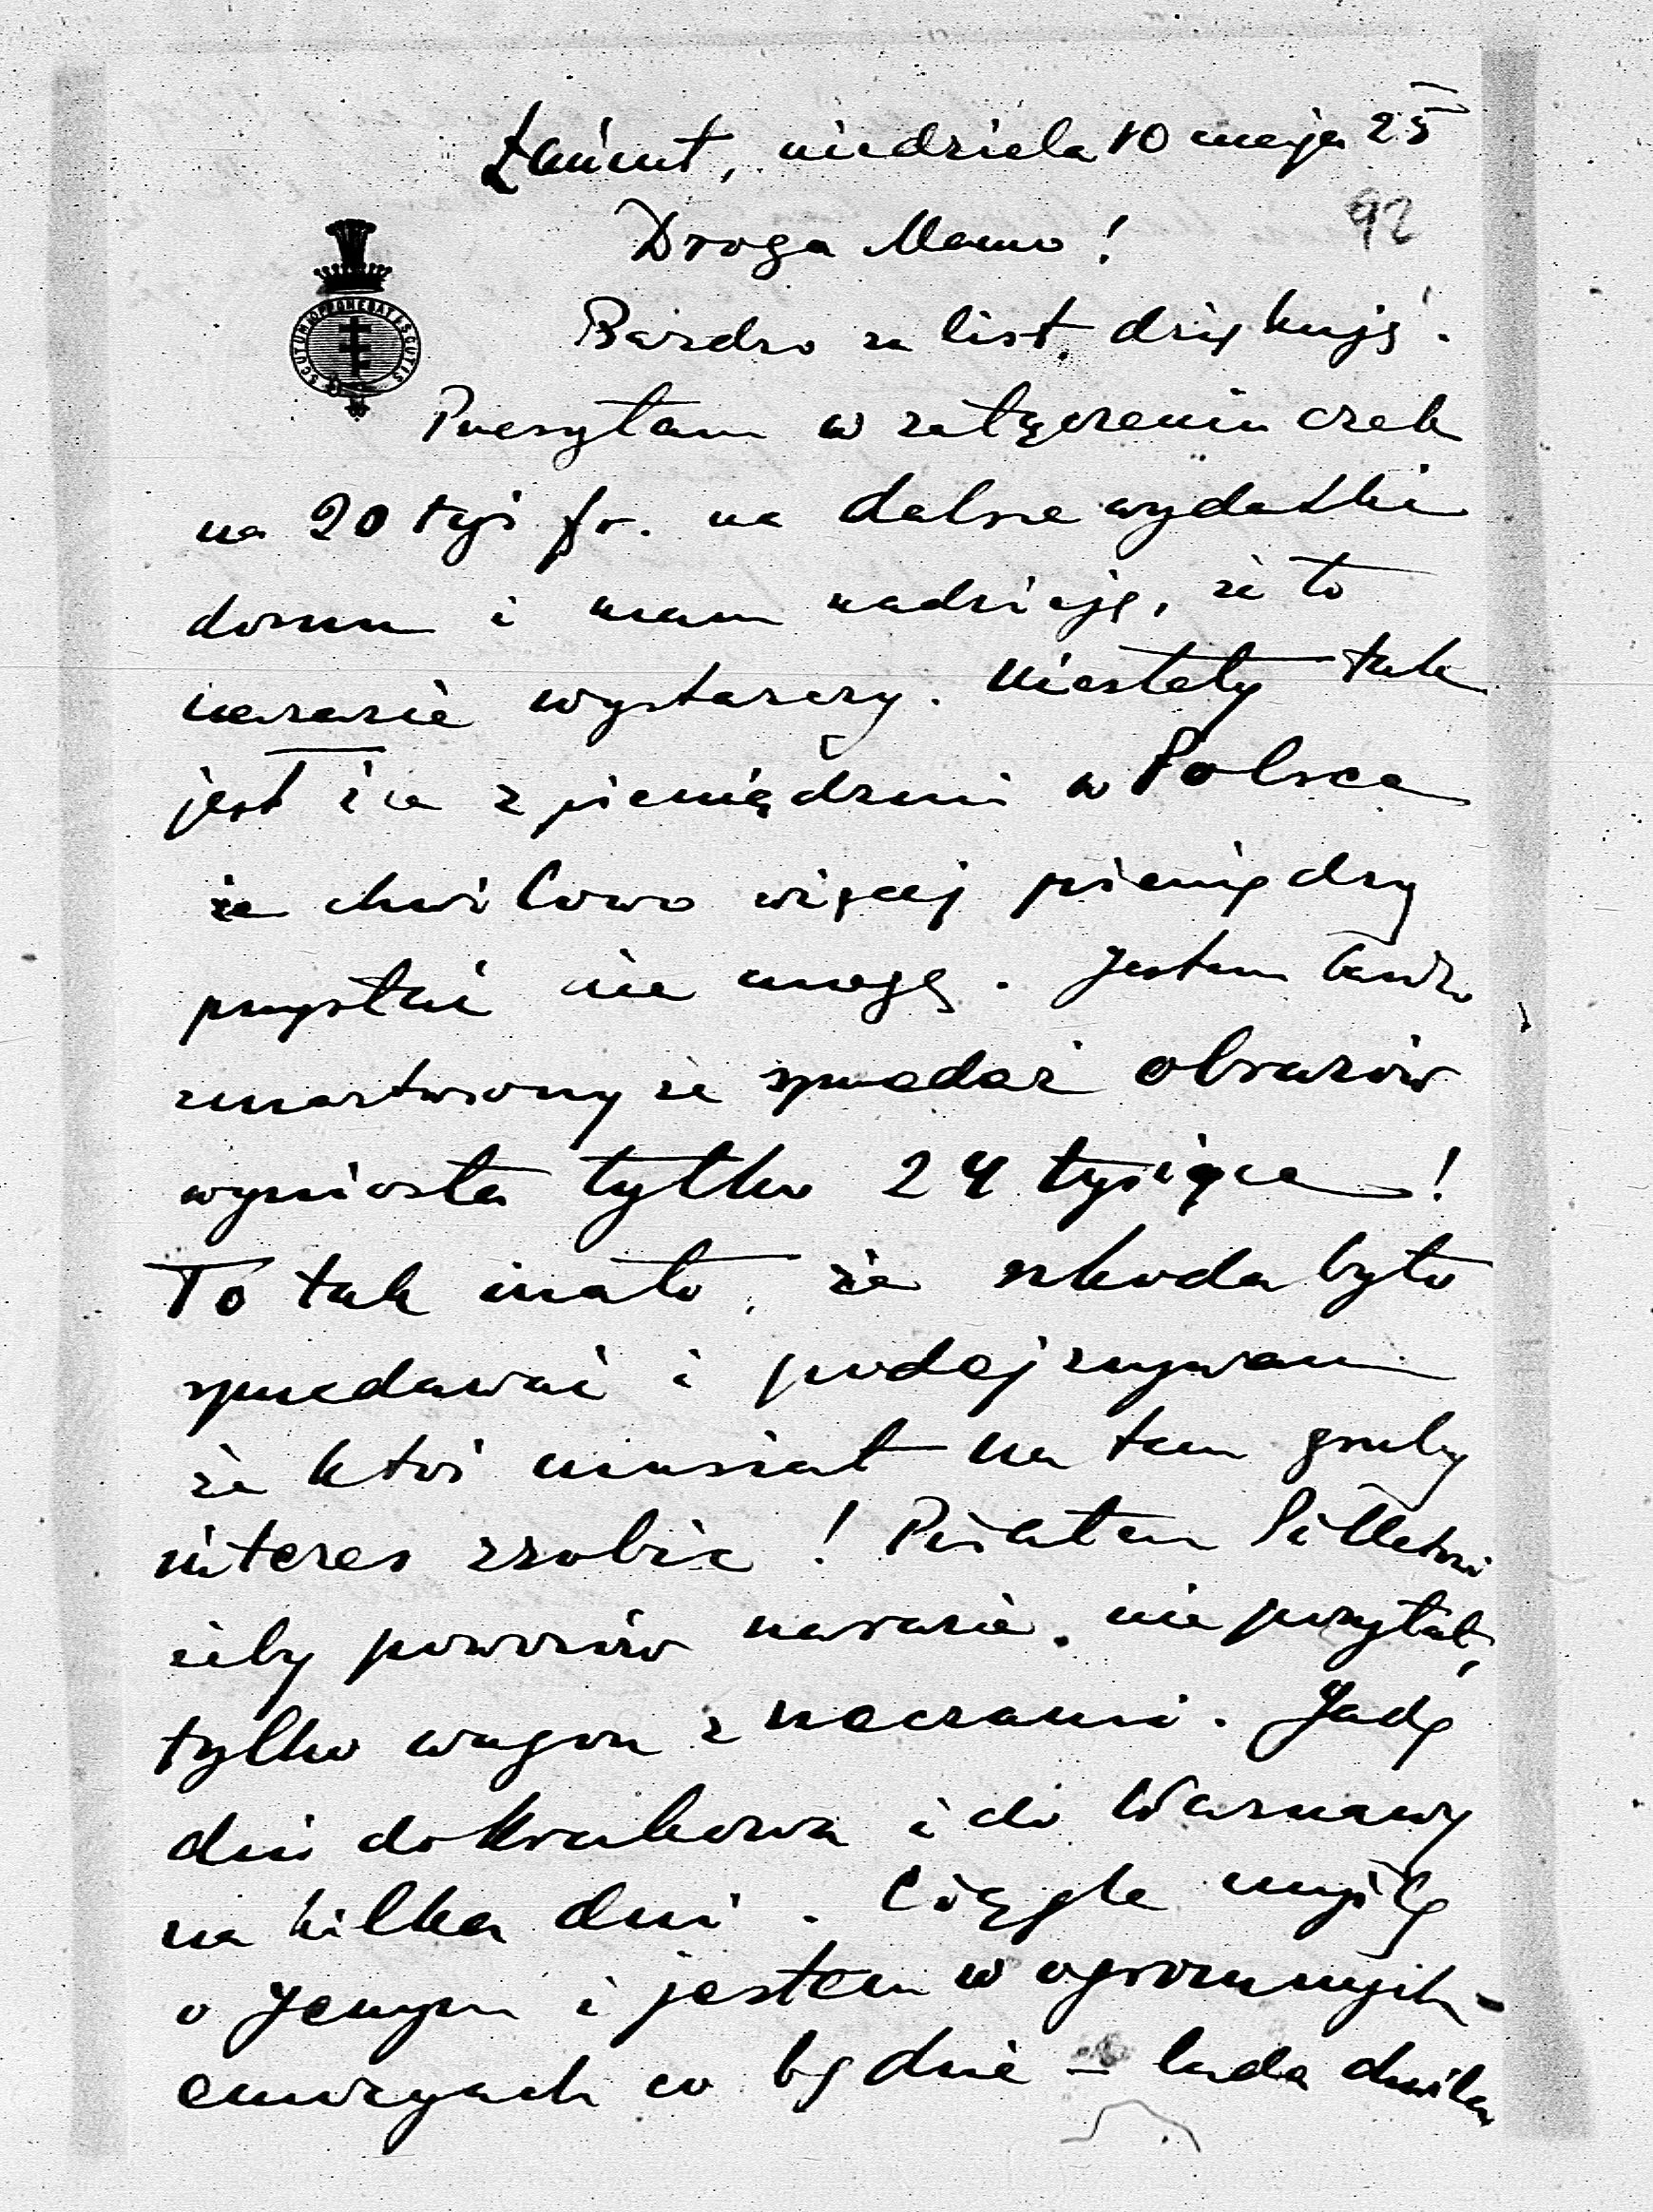 Łańcut, niedziela 10 maja 25
92
Droga Mamo!
SCUTUM OPPONEBAT SCUTIS
Bardzo za list dziękuję.
Przesyłam w załączeniu czek
na 20 tyś fr. na dalsze wydatki
domu i mam nadzieję, że to
narazie wystarczy. Niestety tak
jest źle z pieniądzmi w Polsce
że chwilowo więcej pieniędzy
przysłać nie mogę. Jestem bardzo
zmartwiony że sprzedaż obrazów
wyniosła tylko 24 tysiące!
To tak mało, że szkoda było
sprzedawać i podejrzywam
że ktoś musiał na tem gruby
interes zrobić! Pisałem
żeby powozów narazie nie przysłał,
tylko wagon z meczami. Jadę
dziś do Krakowa i do Warszawy
na kilka dni. Ciągle myślę
o Jerzym i jestem w ogromnych
emocyach co będzie – lada chwila